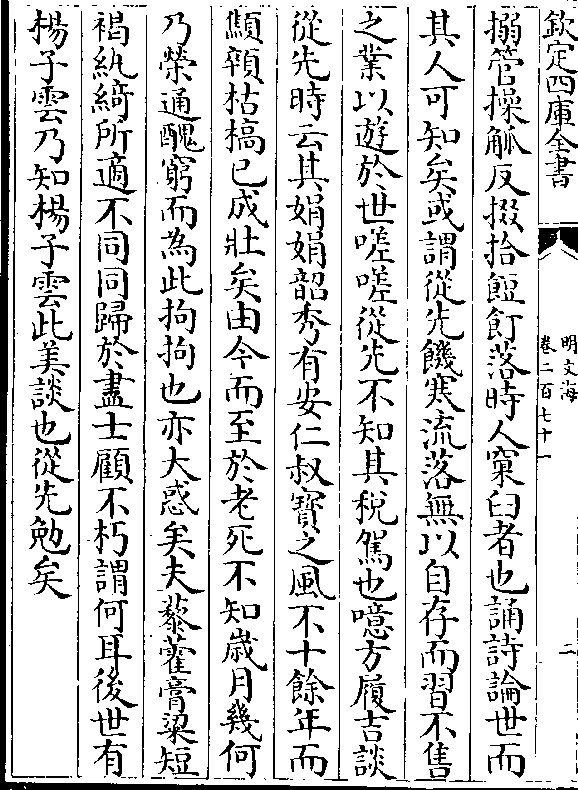 欽定四庫全書
明文海
卷二百七十一
二
搦管操觚反掇拾餖飣落時人窠臼者也誦詩論世而
其人可知矣或謂從先饑寒流落無以自存而習不售
之業以遊於世嗟嗟從先不知其稅駕也噫方履吉談
從先時云其娟娟韶秀有安仁叔寶之風不十餘年而
顦顇枯槁已成壯矣由今而至於老死不知嵗月幾何
乃榮通醜窮而為此拘拘也亦大惑矣夫藜藿膏粱短
褐紈綺所適不同同歸於盡士顧不朽謂何耳後世有
楊子雲乃知楊子雲此美談也從先勉矣